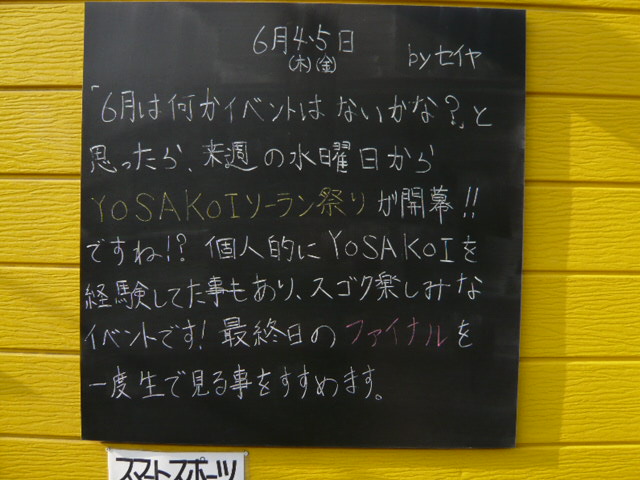 6月4・5日
(木)(金)
byセイヤ
「6月は何かイベントは ないかな?」と
思ったら、来週の水曜日から
YOSAKOIソーラン祭りが開幕!!
ですね!? 個人的にYOSAKOIを
経験してた事もあり、スゴク楽しみな
イベントです! 最終日のファイナルを
一度生で見る事をすすめます。
スマートスポーツ